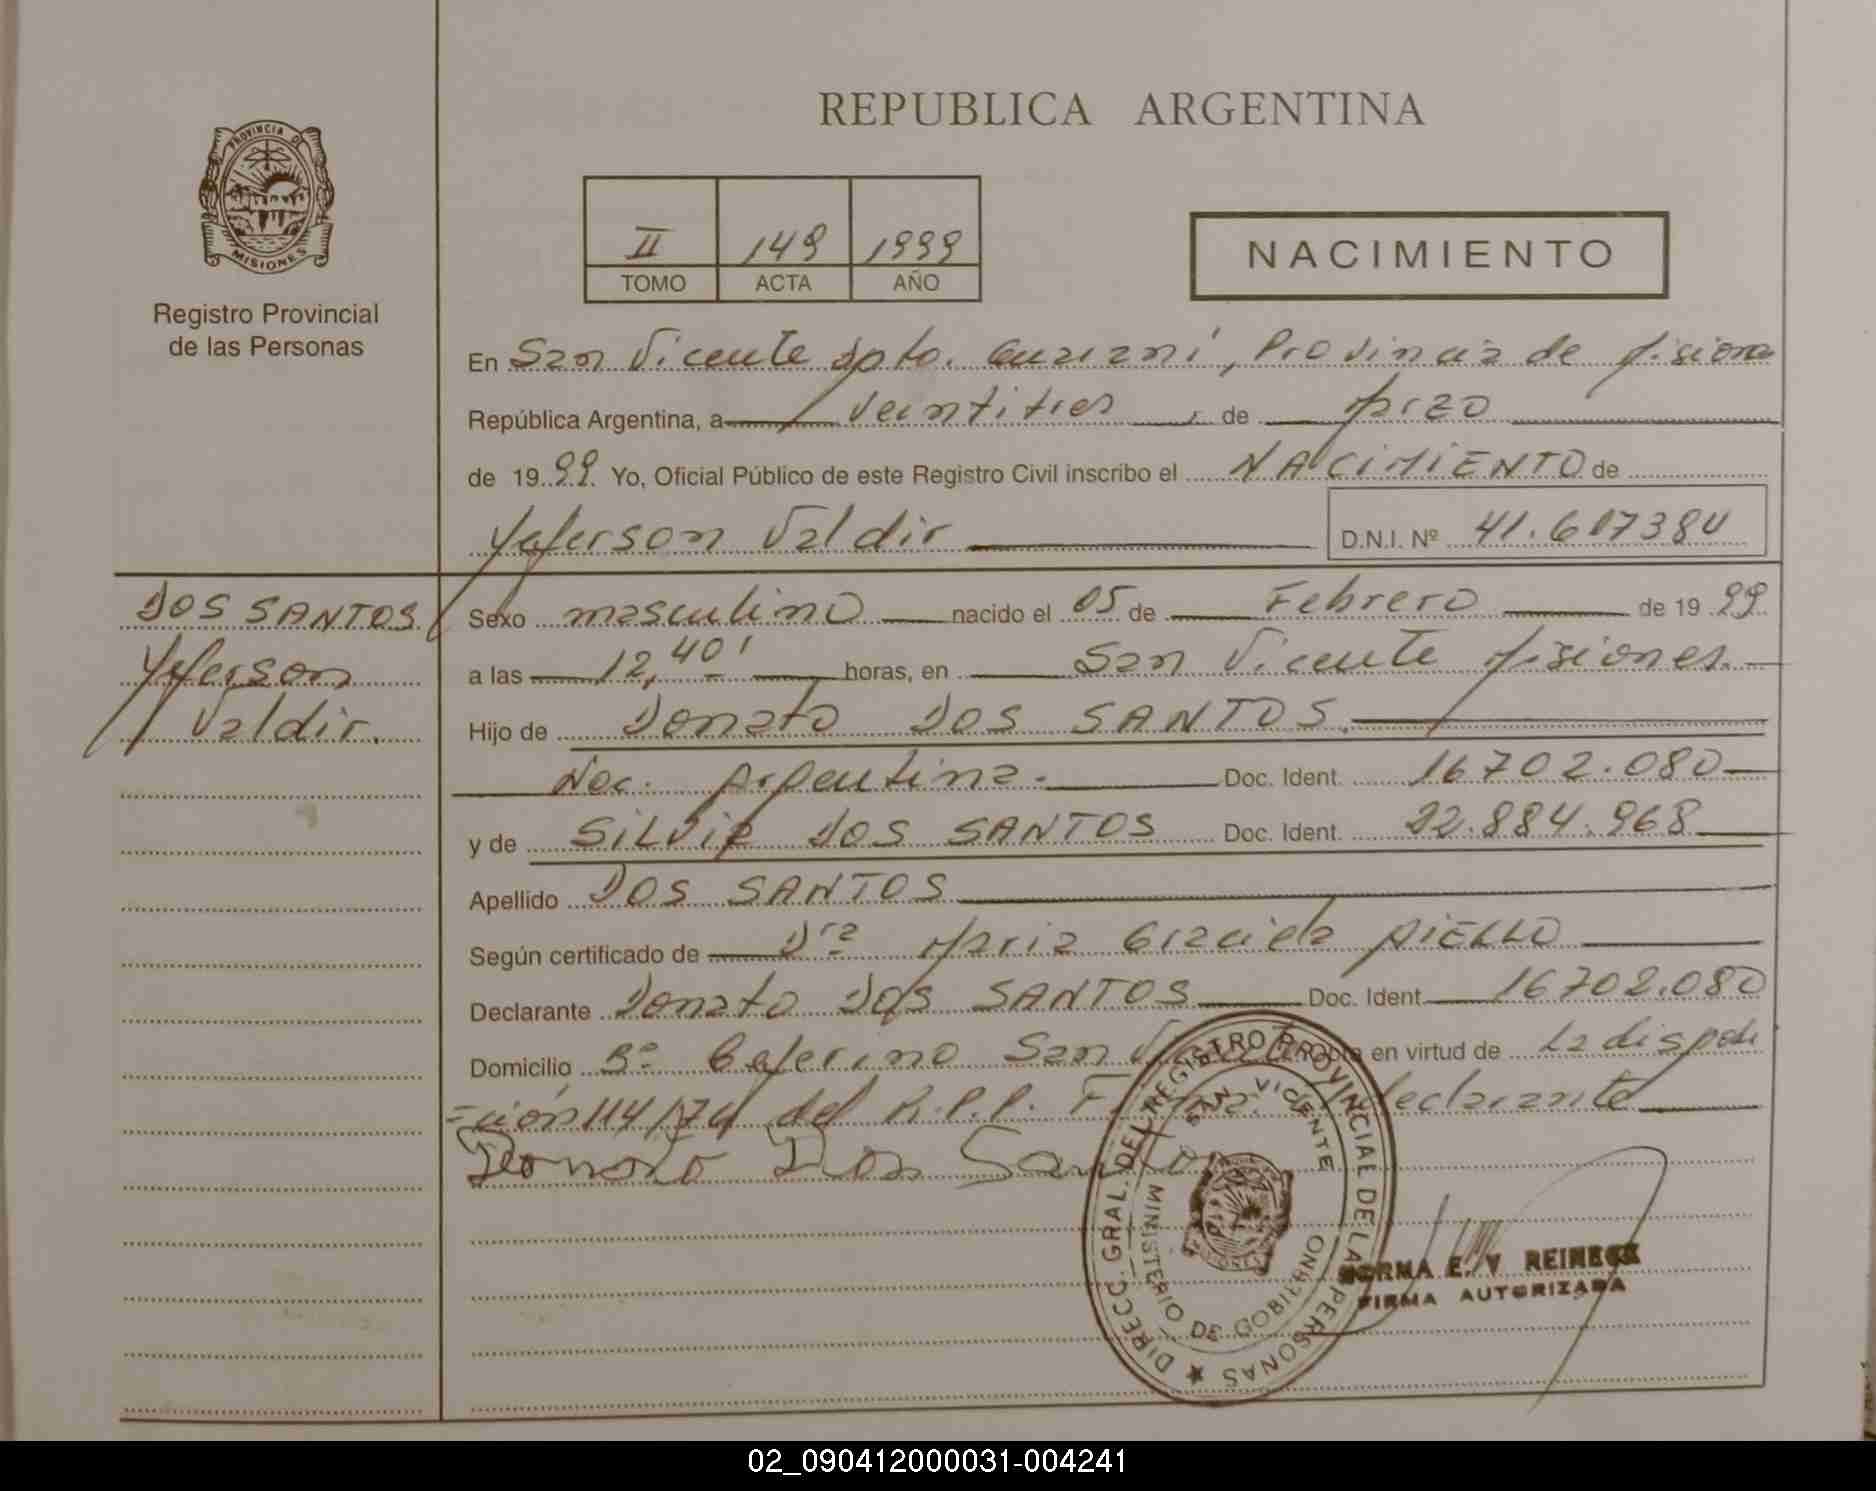 REPUBLICA ARGENTINA
PROVINCIA DE
MISIONES
Registro Provincial
de las Personas
II 149 1999
TOMO ACTA AÑO
NACIMIENTO
En San Vicente dpto. Guarani, Provincia de Misiones
República Argentina, a veintitres de Marzo
de 19 99 Yo, Oficial Público de este Registro Civil inscribo el NACIMIENTO de
Yeferson Valdir D.N.I. Nº 41.617384
DOS SANTOS
Yeferson
Valdir.
Sexo masculino nacido el 05 de Febrero de 19 99
a las 12,40' horas, en San Vicente Misiones.
Hijo de Donato DOS SANTOS.
Nac. Argentina. Doc. Ident. 16702.080
y de SILVIA DOS SANTOS Doc. Ident. 22.884.968
Apellido DOS SANTOS
Según certificado de Dra Maria Graciela AIELLO
Declarante Donato DOS SANTOS Doc. Ident. 16702.080
Domicilio Bº Ceferino San Vicente Obra en virtud de La disposi
=ción 114/74 del R.P.P. Firma declarante
Donato Dos Santos
DIRECC. GRAL. DEL REGISTRO PROVINCIAL DE LAS PERSONAS
SAN VICENTE
MINISTERIO DE GOBIERNO
NORMA E. V REINECK
FIRMA AUTORIZADA
02_090412000031-004241